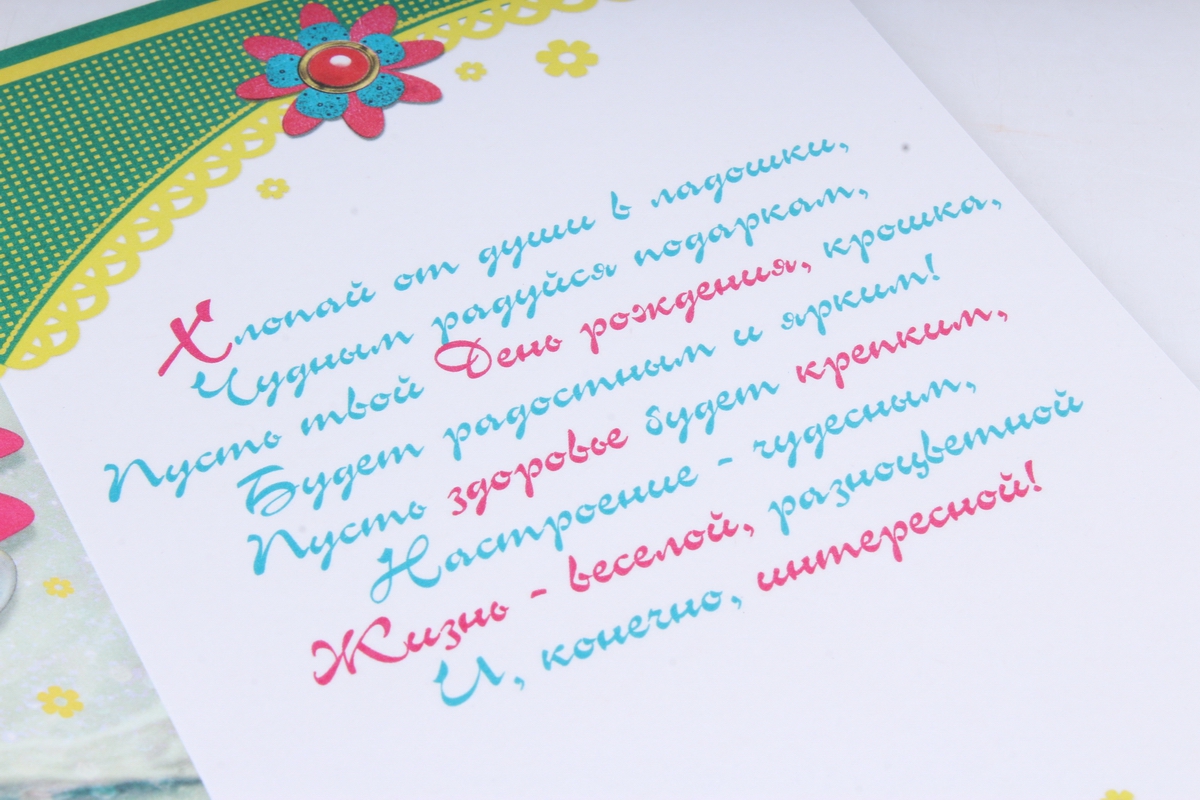 Хлопай от души в ладошки,
Чудным радуйся подаркам,
Пусть твой День рождения, крошка,
Будет радостным и ярким!
Пусть здоровье будет крепким,
Настроение - чудесным,
Жизнь - веселой, разноцветной
И, конечно, интересной!